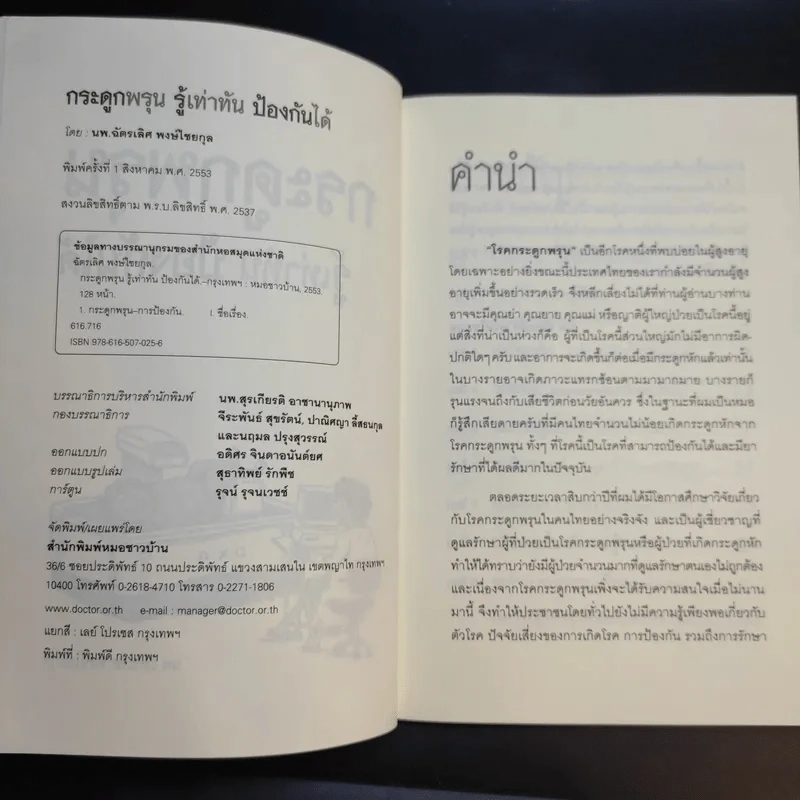 กระดูกพรุน รู้เท่าทัน ป้องกันได้
โดย : นพ.ฉัตรเลิศ พงษ์ไชยกุล
พิมพ์ครั้งที่ 1 สิงหาคม พ.ศ. 2553
สงวนลิขสิทธิ์ตาม พ.ร.บ.ลิขสิทธิ์ พ.ศ. 2537
ข้อมูลทางบรรณานุกรมของสำนักหอสมุดแห่งชาติ
ฉัตรเลิศ พงษ์ไชยกุล.
กระดูกพรุน รู้เท่าทัน ป้องกันได้.–กรุงเทพฯ : หมอชาวบ้าน, 2553.
128 หน้า.
1. กระดูกพรุน–การป้องกัน. I. ชื่อเรื่อง.
616.716
ISBN 978-616-507-025-6
บรรณาธิการบริหารสำนักพิมพ์ นพ.สุรเกียรติ อาชานานุภาพ
กองบรรณาธิการ จีระพันธ์ สุขรัตน์, ปาณิศญา ลี้สธนกุล
และนฤมล ปรุงสุวรรณ์
ออกแบบปก อดิศร จินดาอนันต์ยศ
ออกแบบรูปเล่ม สุธาทิพย์ รักพืช
การ์ตูน รุจน์ รุจนเวชช์
จัดพิมพ์/เผยแพร่โดย
สำนักพิมพ์หมอชาวบ้าน
36/6 ซอยประดิพัทธ์ 10 ถนนประดิพัทธ์ แขวงสามเสนใน เขตพญาไท กรุงเทพฯ
10400 โทรศัพท์ 0-2618-4710 โทรสาร 0-2271-1806
www.doctor.or.th e-mail : manager@doctor.or.th
แยกสี : เลย์ โปรเซส กรุงเทพฯ
พิมพ์ที่ : พิมพ์ดี กรุงเทพฯ
คำนำ
“โรคกระดูกพรุน” เป็นอีกโรคหนึ่งที่พบบ่อยในผู้สูงอายุ
โดยเฉพาะอย่างยิ่งขณะนี้ประเทศไทยของเรากำลังมีจำนวนผู้สูง
อายุเพิ่มขึ้นอย่างรวดเร็ว จึงหลีกเลี่ยงไม่ได้ที่ท่านผู้อ่านบางท่าน
อาจจะมีคุณย่า คุณยาย คุณแม่ หรือญาติผู้ใหญ่ป่วยเป็นโรคนี้อยู่
แต่สิ่งที่น่าเป็นห่วงก็คือ ผู้ที่เป็นโรคนี้ส่วนใหญ่มักไม่มีอาการผิด-
ปกติใดๆ ครับ และอาการจะเกิดขึ้นก็ต่อเมื่อมีกระดูกหักแล้วเท่านั้น
ในบางรายอาจเกิดภาวะแทรกซ้อนตามมามากมาย บางรายก็
รุนแรงจนถึงกับเสียชีวิตก่อนวัยอันควร ซึ่งในฐานะที่ผมเป็นหมอ
ก็รู้สึกเสียดายครับที่มีคนไทยจำนวนไม่น้อยเกิดกระดูกหักจาก
โรคกระดูกพรุน ทั้งๆ ที่โรคนี้เป็นโรคที่สามารถป้องกันได้และมียา
รักษาที่ได้ผลดีมากในปัจจุบัน
ตลอดระยะเวลาสิบกว่าปีที่ผมได้มีโอกาสศึกษาวิจัยเกี่ยว
กับโรคกระดูกพรุนในคนไทยอย่างจริงจัง และเป็นผู้เชี่ยวชาญที่
ดูแลรักษาผู้ที่ป่วยเป็นโรคกระดูกพรุนหรือผู้ป่วยที่เกิดกระดูกหัก
ทำให้ได้ทราบว่ายังมีผู้ป่วยจำนวนมากที่ดูแลรักษาตนเองไม่ถูกต้อง
และเนื่องจากโรคกระดูกพรุนเพิ่งจะได้รับความสนใจเมื่อไม่นาน
มานี้ จึงทำให้ประชาชนโดยทั่วไปยังไม่มีความรู้เพียงพอเกี่ยวกับ
ตัวโรค ปัจจัยเสี่ยงของการเกิดโรค การป้องกัน รวมถึงการรักษา